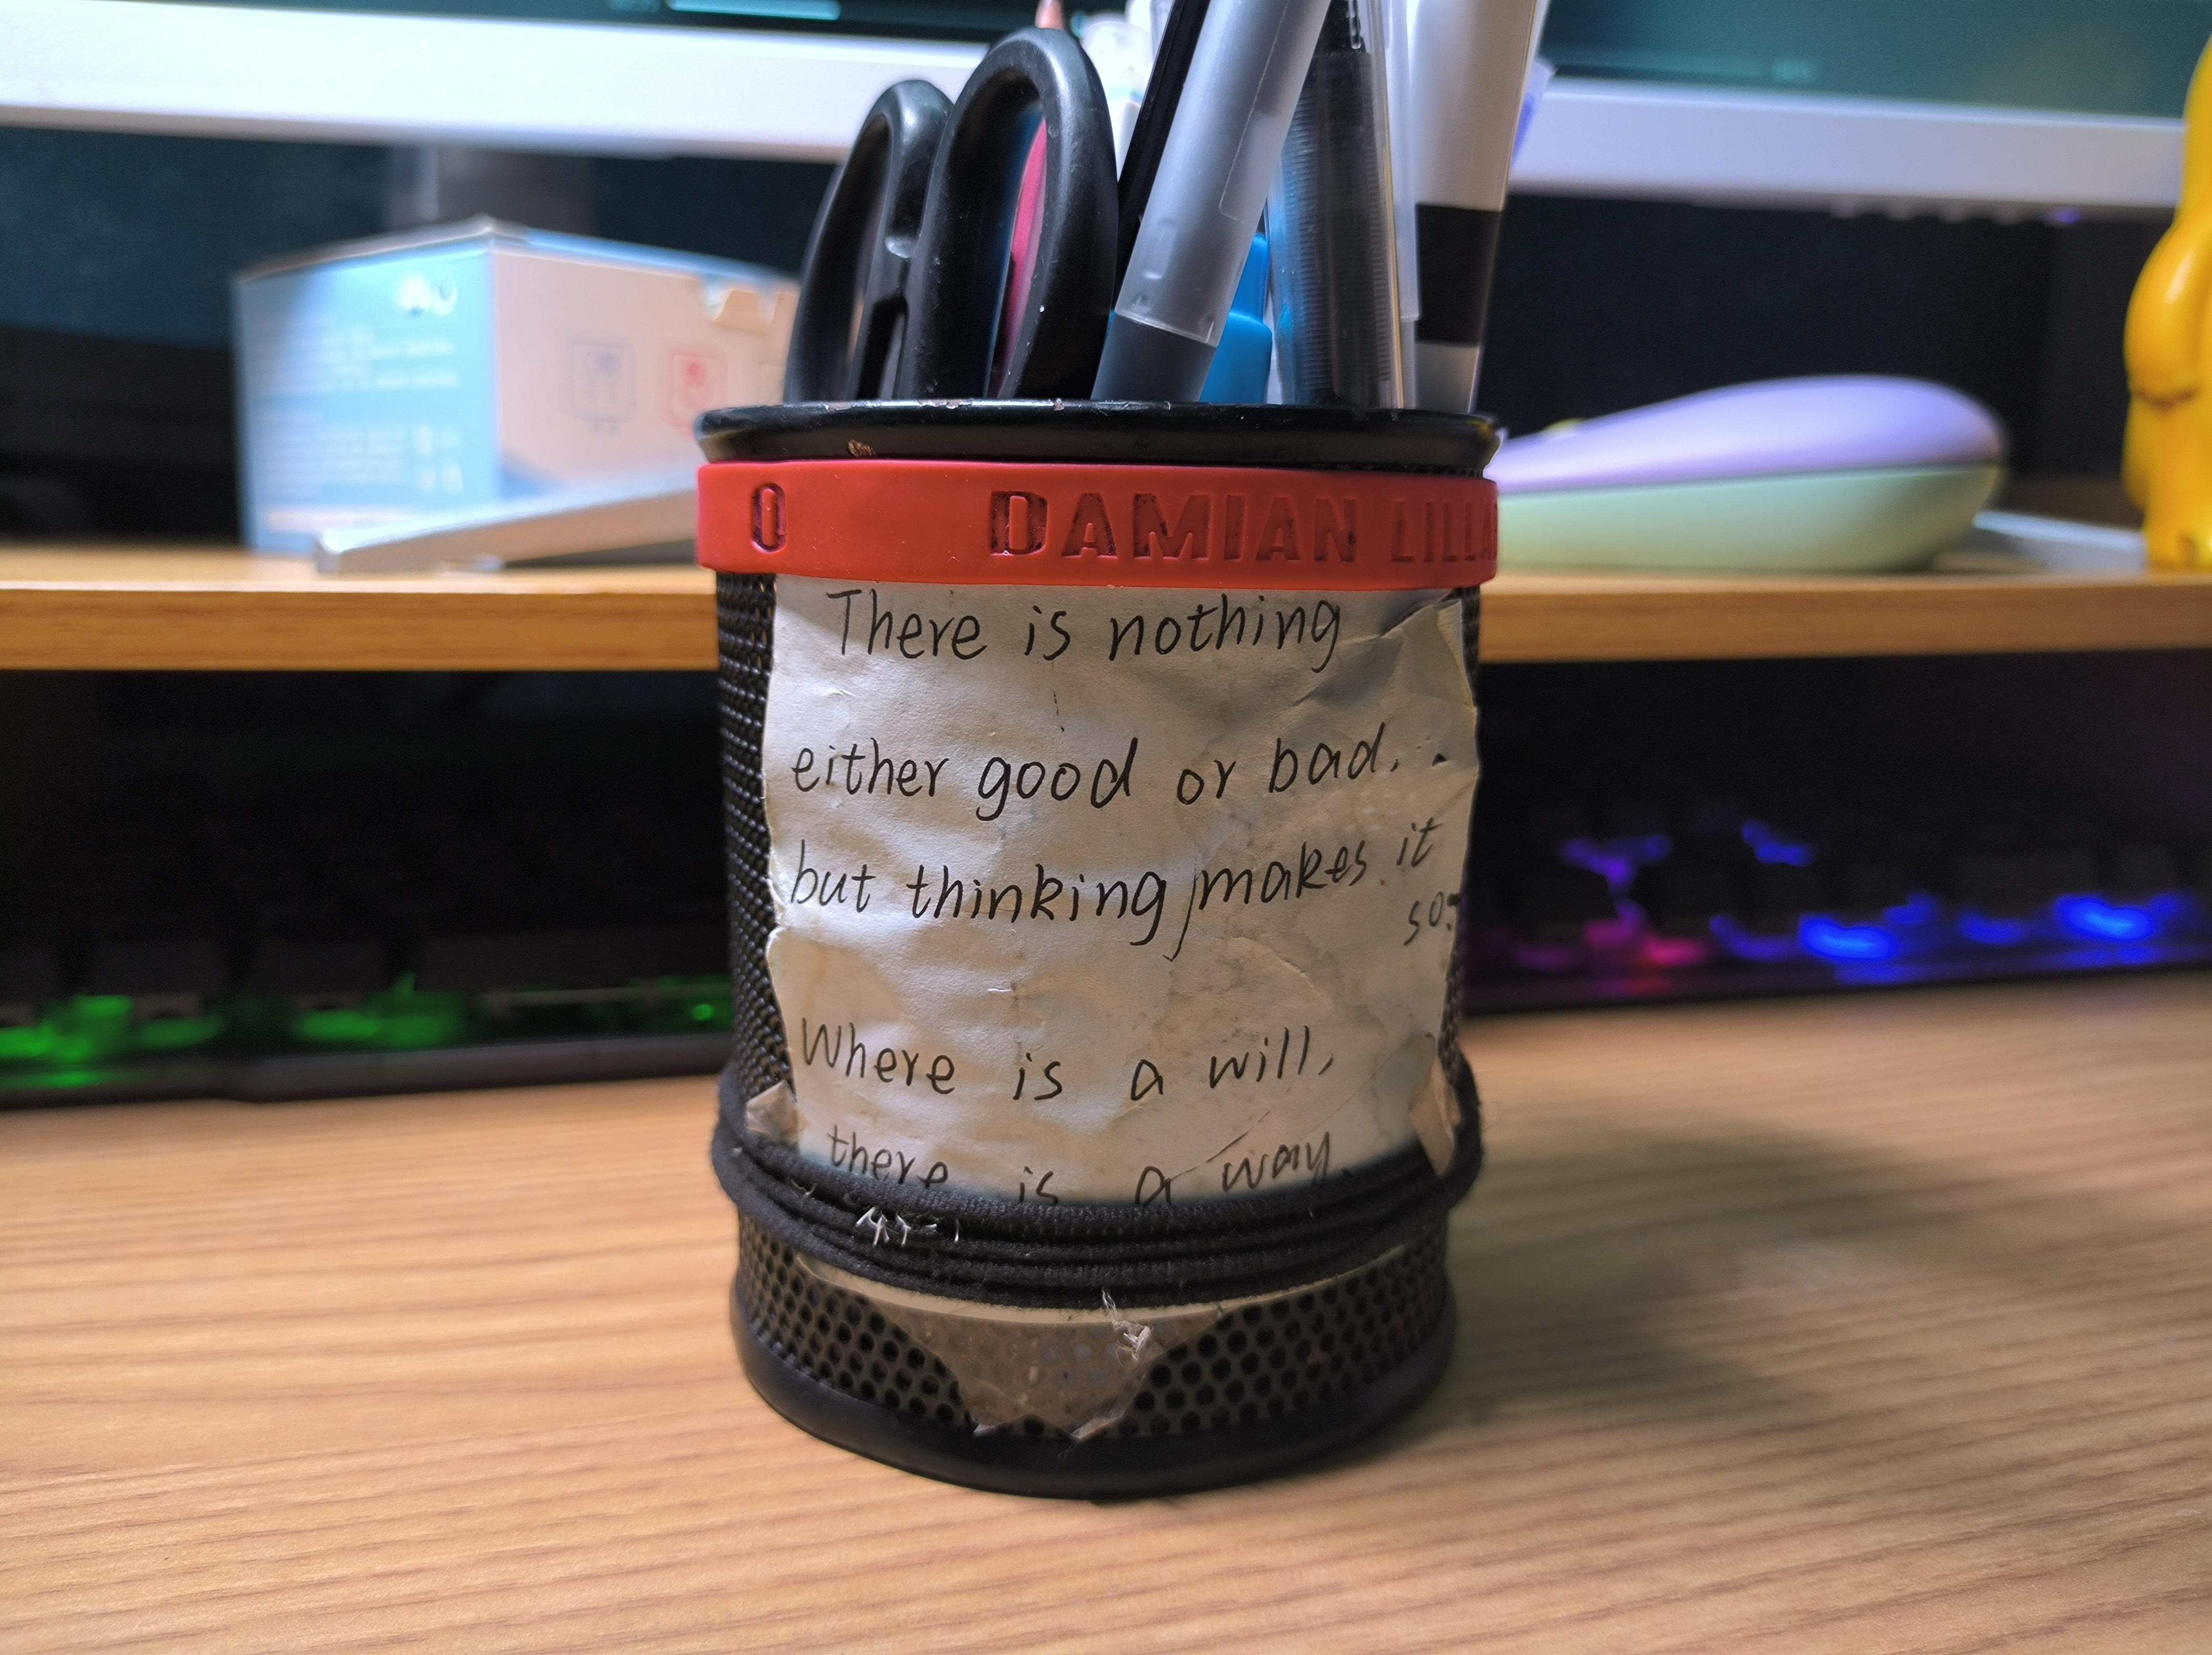 0 DAMIAN LILLA
There is nothing
either good or bad. .
but thinking makes it
so.
Where is a will,
there is a way.